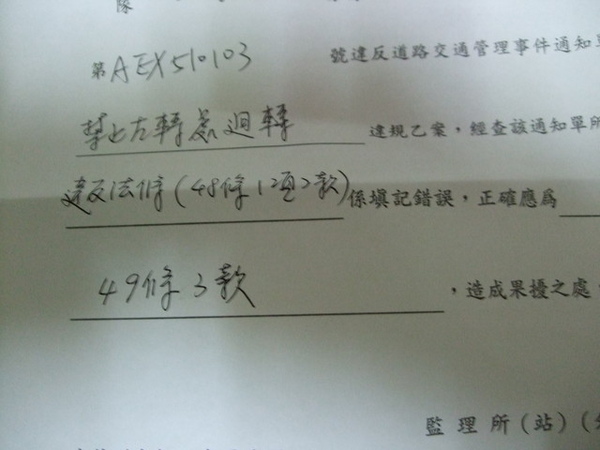 隊
第AEX510103 號違反道路交通管理事件通知單
禁止左轉處迴轉 違規乙案，經查該通知單所
違反法條(48條1項2款)係填記錯誤，正確應爲
49條3款 ，造成果擾之處，
監理所(站)(